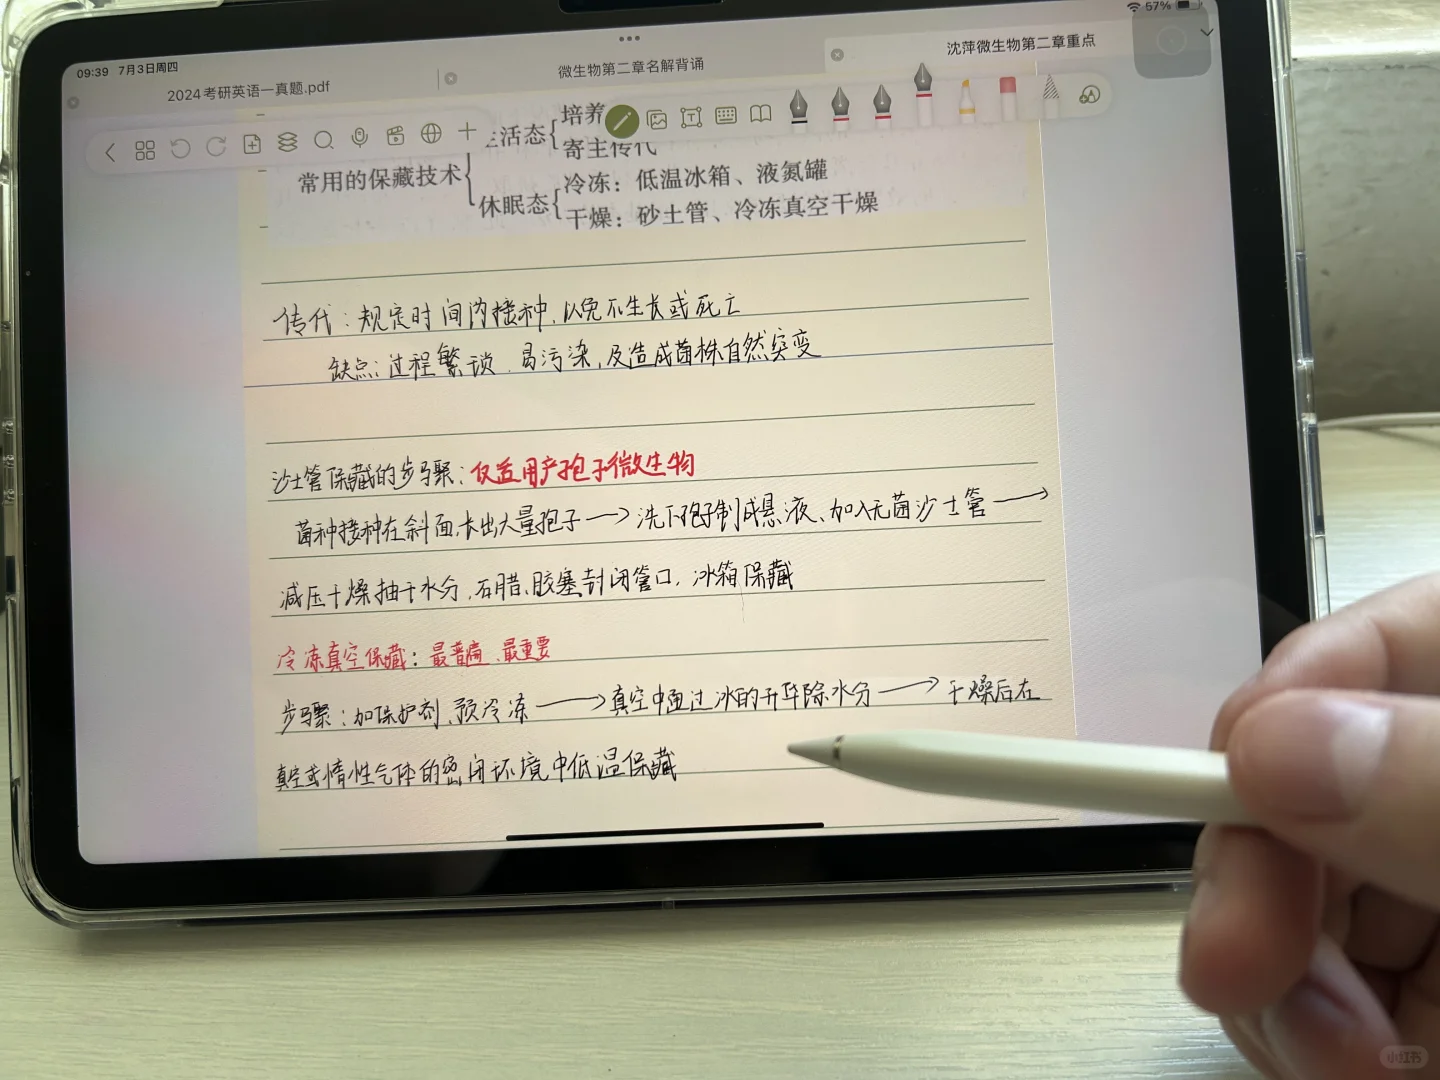 09:39 7月3日周四
57%
2024考研英语一真题.pdf
微生物第二章名解背诵
沈萍微生物第二章重点
培养
活态
寄主传代
常用的保藏技术
冷冻：低温冰箱、液氮罐
休眠态
干燥：砂土管、冷冻真空干燥
传代：规定时间内接种，以免不生长或死亡
缺点：过程繁琐，易污染，及造成菌株自然突变
沙土管保藏的步骤：仅适用产孢子微生物
菌种接种在斜面，长出大量孢子→洗下孢子制成悬液、加入无菌沙土管→
减压干燥抽干水分，石腊、胶塞封闭管口，冰箱保藏
冷冻真空保藏：最普遍、最重要
步骤：加保护剂、预冷冻→真空中通过冰的升华除水分→干燥后在
真空或惰性气体的密闭环境中低温保藏
小红书